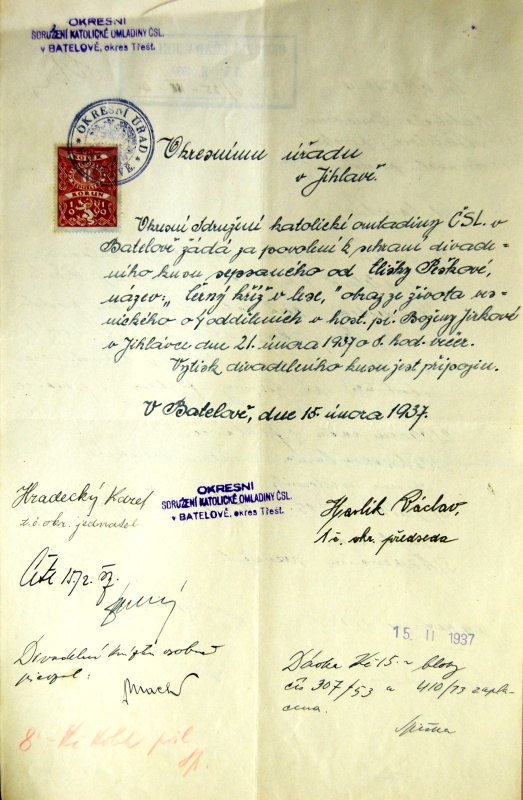 OKRESNÍ
SDRUŽENÍ KATOLICKÉ OMLADINY ČSL.
v BATELOVĚ, okres Třešť.
OKRESNÍ ÚŘAD
KOLEK
KORUN
Okresnímu úřadu
v Jihlavě.
Okresní sdružení katolické omladiny ČSL. v
Batelově žádá za povolení k sehrání divadel-
ního kusu sepsaného od Elišky Peškové,
název: „Černý kříž v lese," obraz ze života ves-
nického o odděleních v host. pí. Boženy Jirkové
v Jihlávce dne 21. února 1937 o 8. hod. večer.
Výtisk divadelního kusu jest připojen.
V Batelově, dne 15. února 1937.
Hradecký Karel
t.č. okr. jednatel
OKRESNÍ
SDRUŽENÍ KATOLICKÉ OMLADINY ČSL.
v BATELOVĚ, okres Třešť.
Havlík Václav,
t.č. okr. předseda
15/2.
15 II 1937
Divadelní osobně
Dávka Kč 15.- bloky
čís 307/53 a 410/73 zapla-
cena.
8 - Kč